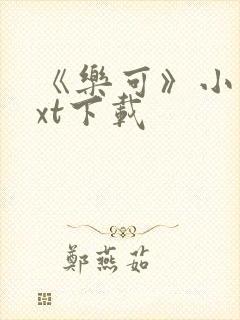 《樂可》小
xt下載
鄭燕茹